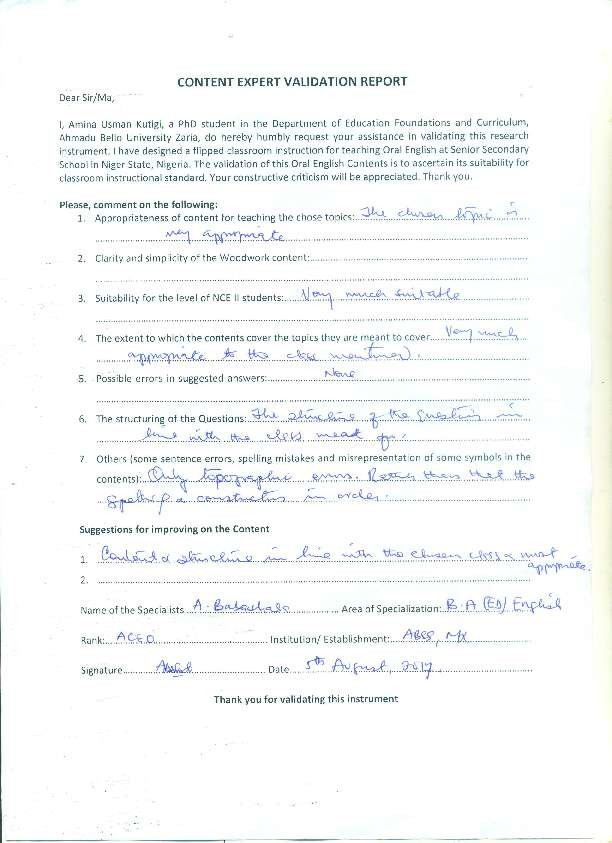 CONTENT EXPERT VALIDATION REPORT
Dear Sir/Ma,
I, Amina Usman Kutigi, a PhD student in the Department of Education Foundations and Curriculum,
Ahmadu Bello University Zaria, do hereby humbly request your assistance in validating this research
instrument. I have designed a flipped classroom instruction for teaching Oral English at Senior Secondary
School in Niger State, Nigeria. The validation of this Oral English Contents is to ascertain its suitability for
classroom instructional standard. Your constructive criticism will be appreciated. Thank you.
Please, comment on the following:
1. Appropriateness of content for teaching the chose topics: The chosen topic is
very appropriate
2. Clarity and simplicity of the Woodwork content:
3. Suitability for the level of NCE II students: Very much suitable
4. The extent to which the contents cover the topics they are meant to cover Very much
appropriate to the class mentioned.
5. Possible errors in suggested answers: None
6. The structuring of the Questions: The structure of the questions in
line with the class meant for.
7. Others (some sentence errors, spelling mistakes and misrepresentation of some symbols in the
contents): Only topographic errors. than that the
spelling & construction in order.
Suggestions for improving on the Content
1. Content & structure in line with the chosen class & most
appropriate.
2.
Name of the Specialists A. Area of Specialization: B.A (ED) English
Rank: ACEO Institution/ Establishment:
Signature Date 5th August, 2017
Thank you for validating this instrument